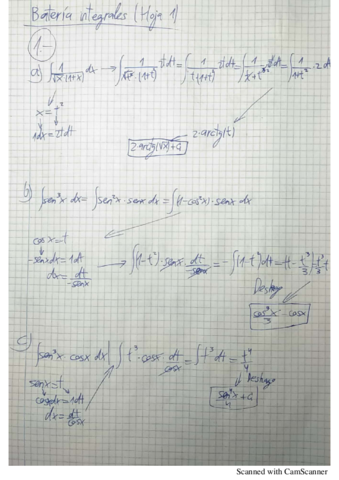 Batería integrales (Hoja 1)
1.-
a) ∫ 1/(√x·(1+x)) dx → ∫ 1/(√t²·(1+t²)) 2t dt = ∫ 1/(t(1+t²)) 2t dt = ∫ 2t dt = ∫ 1/(1+t²) · 2 dt
x = t²
1dx = 2t dt
2·arctg(t)
2·arctg(√x)+C
b) ∫ sen³x dx = ∫ sen²x · senx dx = ∫ (1-cos²x) · senx dx
cosx = t
-senx dx = 1dt
dx = dt/-senx
→ ∫ (1-t²) · senx dt/-senx = -∫ (1-t²) dt =
Deshago
cos³x/3 - cosx
c) ∫ sen³x cosx dx ∫ t³ · cosx dt/cosx = ∫ t³ dt = t⁴/4
senx = t
cosx dx = 1dt
dx = dt/cosx
Deshago
sen⁴x/4 + C
Scanned with CamScanner